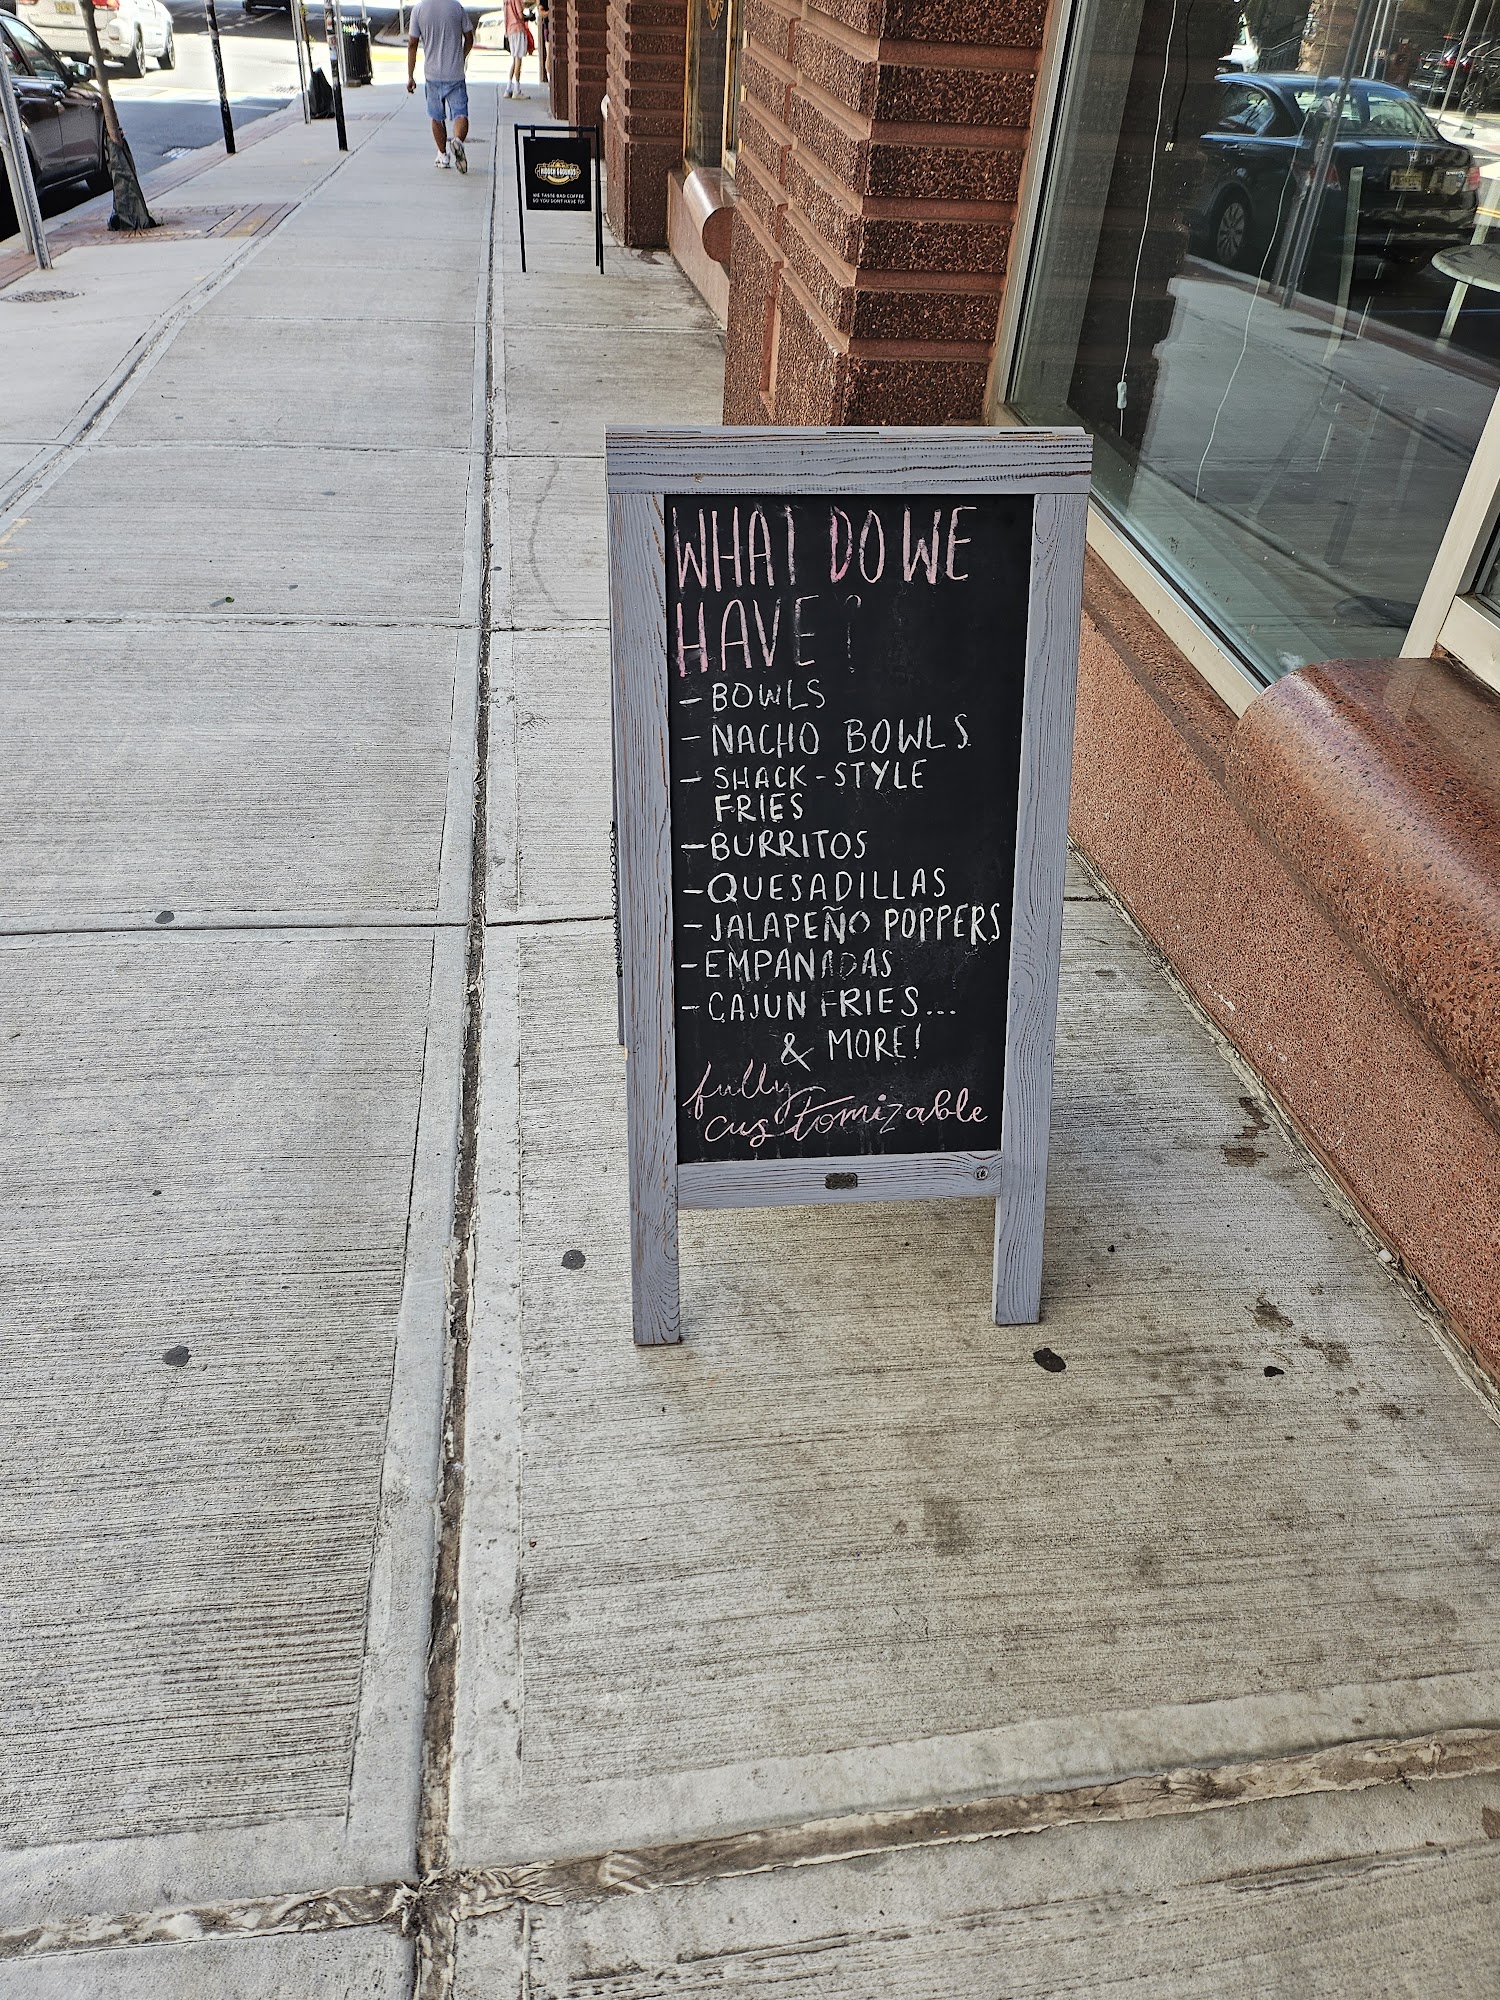 HIDDEN GROUNDS
WE TASTE BAD COFFEE
SO YOU DON'T HAVE TO!
WHAT DO WE
HAVE?
- BOWLS
- NACHO BOWLS
- SHACK-STYLE
FRIES
- BURRITOS
- QUESADILLAS
- JALAPEÑO POPPERS
- EMPANADAS
- CAJUN FRIES...
& MORE!
fully
customizable